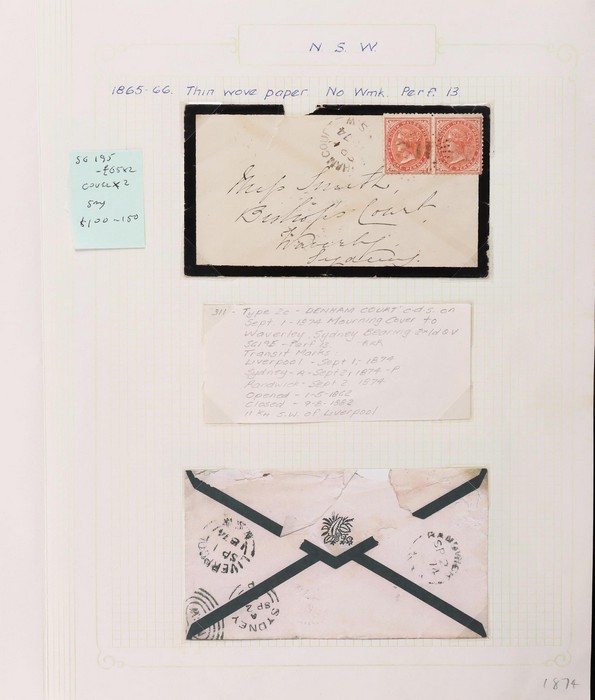 N. S. W.
1865-66. Thin wove paper No Wmk. Perf. 13
SG 195
- £65x2
cover x 2
say
£100-150
DENHAM COURT
N.S.W
74
NEW SOUTH WALES
NEW SOUTH WALES
Miss Smith,
Bishop's Court,
Waverley,
Sydney.
Type 2c - DENHAM COURT cds on
Sept 1 - 1874 Mourning Cover to
Waverley, Sydney Bearing 2-1d Q.V
SG195 - Perf 13
Transit Marks:
Liverpool - Sept 1, - 1874
Sydney - A - Sept 2, 1874 - P
Randwick - Sept 2 1874
Opened - 1-5-
Closed -
11 Km S.W of Liverpool
LIVERPOOL
SP 1
1874
N.S.W
RANDWICK
SP 2
74
SP 2
SYDNEY
1874